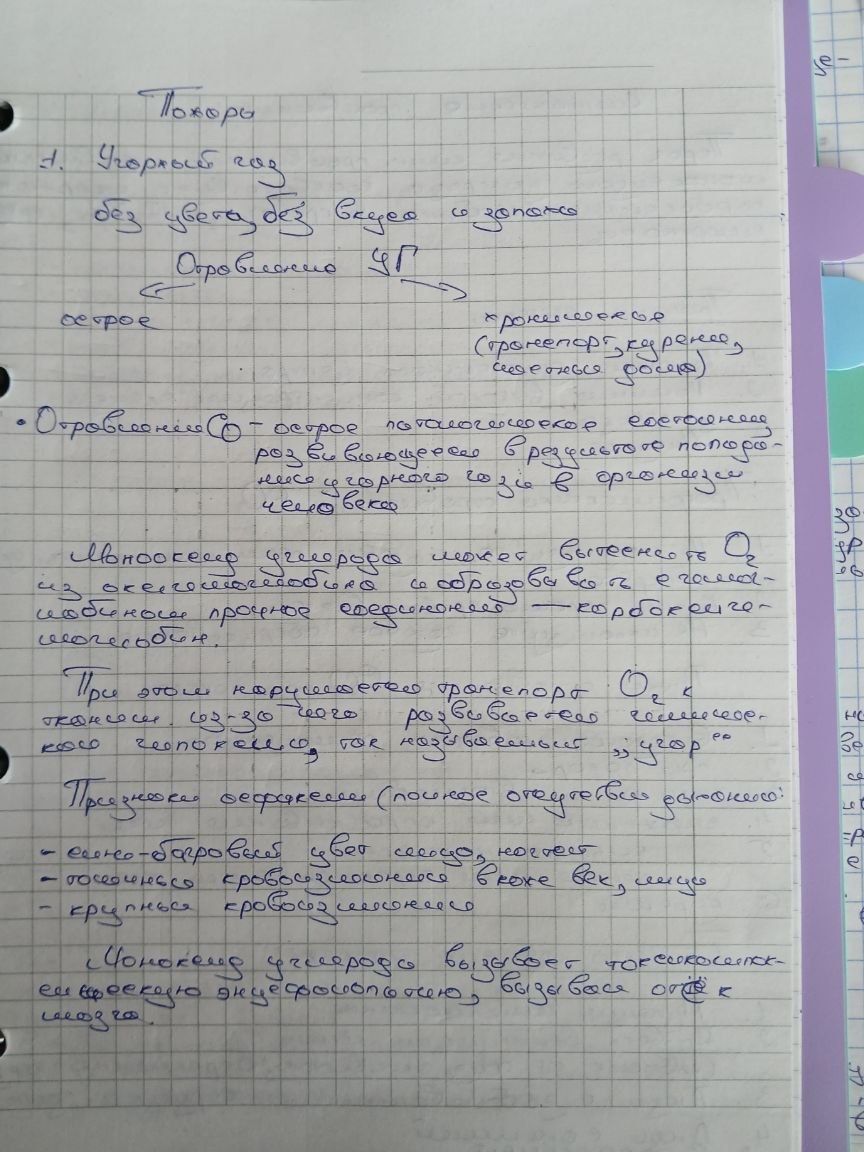 Пожары
1. Угарный газ
без цвета, без вкуса и запаха
Отравление УГ
острое
хроническое
(транспорт, курение,
шахтные дома)
• Отравление CO – острое патологическое состояние,
развивающееся в результате попада-
ния угарного газа в организм
человека
Монооксид углерода может вытеснять O2
из оксигемоглобина и образовывать с гемог-
лобином прочное соединение — карбоксиге-
моглобин.
При этом нарушается транспорт O2 к
тканям из-за чего развивается гемичес-
кая гипоксия, так называемый „угар“
Признаки асфиксии (полное отсутствие дыхания:
- сине-багровый цвет лица, ногтей
- точечные кровоизлияния в коже век, лица
- крупные кровоизлияния
Моноксид углерода вызывает токсикогипок-
сическую энцефалопатию, вызывая отёк
мозга.